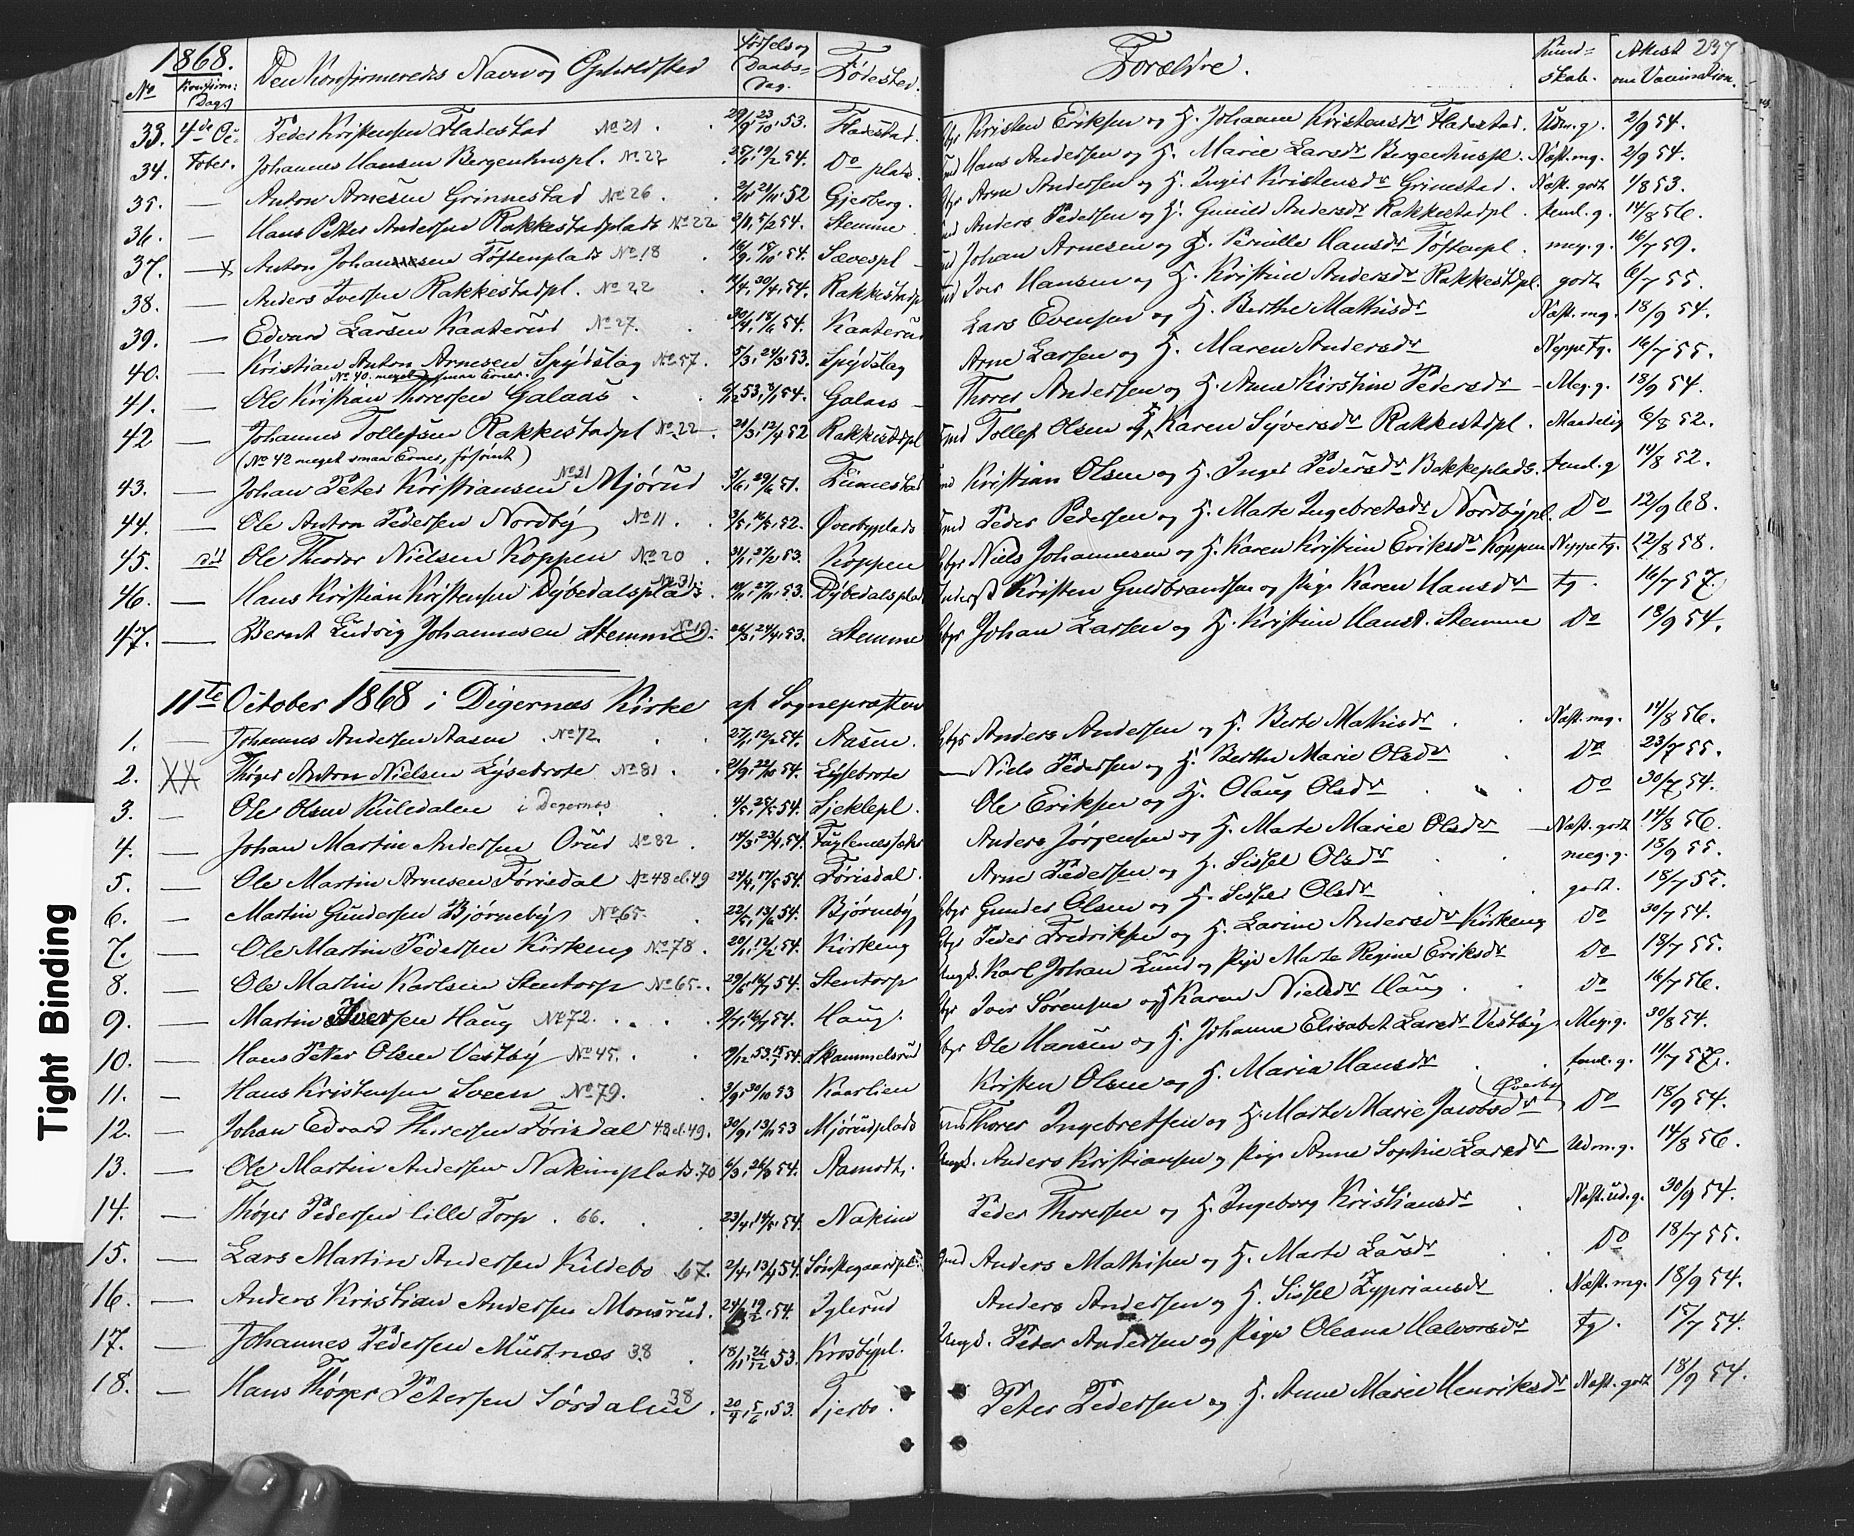 1868.
No
Konfirm: Dag.
Den Konfirmeredes Navn og Opholdsted
Fødsels og Daabs= dag.
Fødested.
Forældre.
Kund= skab.
Attest om Vaccination.
237
33. 4de Oc= Peder Kristensen Fladestad No 21 29/9, 23/10, 53. Fladestad. Kristen Eriksen og H. Johanne Kristensdr Fladestad. Udm. g. 2/9 54.
34. tober. Johannes Hansen Bergenhuspl. No 27 19/2 54. Do plads. Hans Andersen og H. Marie Larsdr Bergenhuspl. Næst. mg. 2/9 54.
35. — Anton Arnesen Grinnestad No 26 52 Gjerberg. Arne Andersen og H. Inger Kristensdr Grinestad. Næst. godt 1/8 53.
36. — Hans Petter Andersen Rakkestadplads No 22 5/2 54. Stemme. Anders Pedersen og H. Gunild Andersdr Rakkestadpl. teml. g. 14/8 56.
37. — x Anton Johannesen Toftenplads No 18 54. Sævespl — Johan Arnesen og H. Pernille Hansdr Toftenpl. meg. g. 16/7 59.
38. — Anders Iversen Rakkestadpl. No 22 30/4, 54. Rakkestadpl Iver Hansen og H. Kristine Andersdr Rakkestdpl. godt 6/7 55.
39. — Edvard Larsen Kaaterud No 27. 30/4, 18/6 54. Kaaterud Lars Evensen og H. Berthe Mathisdr Næst. mg. 18/9 54.
40. — Kristian Anton Arnesen Spydslag No 57. 5/3, 24/3, 53. Spydslag Arne Larsen og H. Maren Andersdr Neppe tg. 16/7 55.
No 40. meget smaa Evner.
41. — Ole Kristian Thoresen Galaas 6/12 53, 54. Galaas — Thores Andersen og H. Anne Kirstine Pedersdr — Meg. g. 18/9 54.
42 — Johannes Tollefsen Rakkestadpl No 22 12/4 52 Rakkestdpl Tollef Olsen og H. Karen Syversdr Rakkestdpl. Maadelig 6/8 52.
(No 42 meget smaa Evner, forsømt)
43. — Johan Peter Kristiansen No 21 Mjørud 5/6, 29/6 51. Finnestad Kristian Olsen og H. Inger Pedersdr Bakkeplads. teml. g 14/8 52.
44. — Ole Anton Pedersen Nordby No 11. 3/5, 16/5, 52. Øverbyplads Peder Pedersen og H. Marte Ingebretsdr Nordbypl. Do 12/9 68.
45. Ole Theodor Nielsen Koppen No 20 31/1, 27/2, 53. Koppen Niels Johannesen og H. Karen Kristine Eriksdr Koppen Neppe tg. 12/8 58.
46. — Hans Kristian Kristensen Dybedalsplads No 31. 53. Dybedalsplad Kristen Guldbrandsen og Pige Karen Hansdr tg. 16/7 57.
47. — Bernt Ludvig Johannesen Stemme No 19. 24/4, 53. Stemme Johan Larsen og H. Kristine Hansd. Stemme Do 18/9 54.
11te October 1868 i Degernæs Kirke af Sognepræsten
1. — Johannes Andersen Aasen No 72. 27/1, 12/2 54. Aasen. Anders Andersen og H. Berte Mathisdr Næst. mg. 14/8 56.
2. XX Thøger Anton Nielsen Lysebrote No 81 21/9, 22/10 54. Lysebrote Niels Pedersen og H. Berthe Marie Olsdr Do 23/7 55.
3. — Ole Olsen Kuledalen i Degernes 4/5, 25/5 54. Sjeklepl. Ole Eriksen og H. Olaug Olsdr Do 30/7 54.
4. — Johan Martin Andersen Orud No 82. 14/3, 23/4, 54. Fuglenesseks Anders Jørgensen og H. Marte Marie Olsdr — Næst. godt 14/8 56.
5. — Ole Martin Arnesen Førrisdal No 48 el. 49 24/4, 17/5 54. Førisdal. Arne Pedersen og H. Sissel Olsdr meg. g. 18/9 55.
6. — Martin Gundersen Bjørneby No 65. 22/5, 13/6 54. Bjørneby Gunder Olsen og H. Sissel Olsdr godt. 18/7 55.
7. — Ole Martin Pedersen Kirkeng No 78. 20/1, 12/2 54. Kirkeng Peder Fredriksen og H. Larine Andersdr Kirkeng Do 30/7 54.
8. — Ole Martin Karlsen Stentorp No 65. 29/6, 16/7 54. Stentorp Karl Johan Lund og Pige Marte Regine Eriksdr Do 18/7 55.
9. — Martin Iversen Haug No 72. 9/7, 16/7 54. Haug. Iver Sørensen og H. Karen Nielsdr Haug. Do 16/7 56.
10. — Hans Peter Olsen Vestby No 45. 9/12 53, 15/1 54. Skammelsrud Ole Hansen og H. Johanne Elisabet Larsdr Vestby Meg. g. 30/8 54.
11. — Hans Kristensen Sveen No 79. 3/9, 30/10 53 Kaarlien Kristen Olsen og H. Maria Hansdr temml. g. 11/7 57.
12. — Johan Edvard Thoresen Førisdal 48 el. 49. 30/9, 13/11 53 Mjørudplads Thores Ingebretsen og H. Marte Marie Jacobsdr (Øverby Do 18/9 54.
13. — Ole Martin Andersen Nakimplads. 70 6/3, 26/3 54. Aamodt. Anders Kristiansen og Pige Anne Sophie Larsdr Udm. g. 14/8 56.
14. — Thøger Pedersen lille Torp. 66. 23/4, 14/5, 54. Nakim Peder Thoresen og H. Ingeborg Kristiansdr Næst. ud. g. 30/9 54.
15. — Lars Martin Andersen Kildebo 67. 2/4, 13/4 54. Sønstegaardpl. Anders Mathisen og H. Marte Larsdr Do 18/7 55.
16. — Anders Kristian Andersen Monsrud. 19/2, 54. Iglerud Anders Andersen og H. Sissel Zypriansdr Næst. mg. 18/9 54.
17. — Johannes Pedersen Mustnæs 38 18/11, 26/12 53. Krosbypl. Peder Andersen og Pige Oleana Halvorsdr tg. 15/7 54.
18. — Hans Thøger Petersen Sørdalen 38. 20/4, 5/6, 53. Tjerbo. Peter Pedersen og H. Anne Marie Henriksdr Næst. godt 18/9 54.
Tight Binding